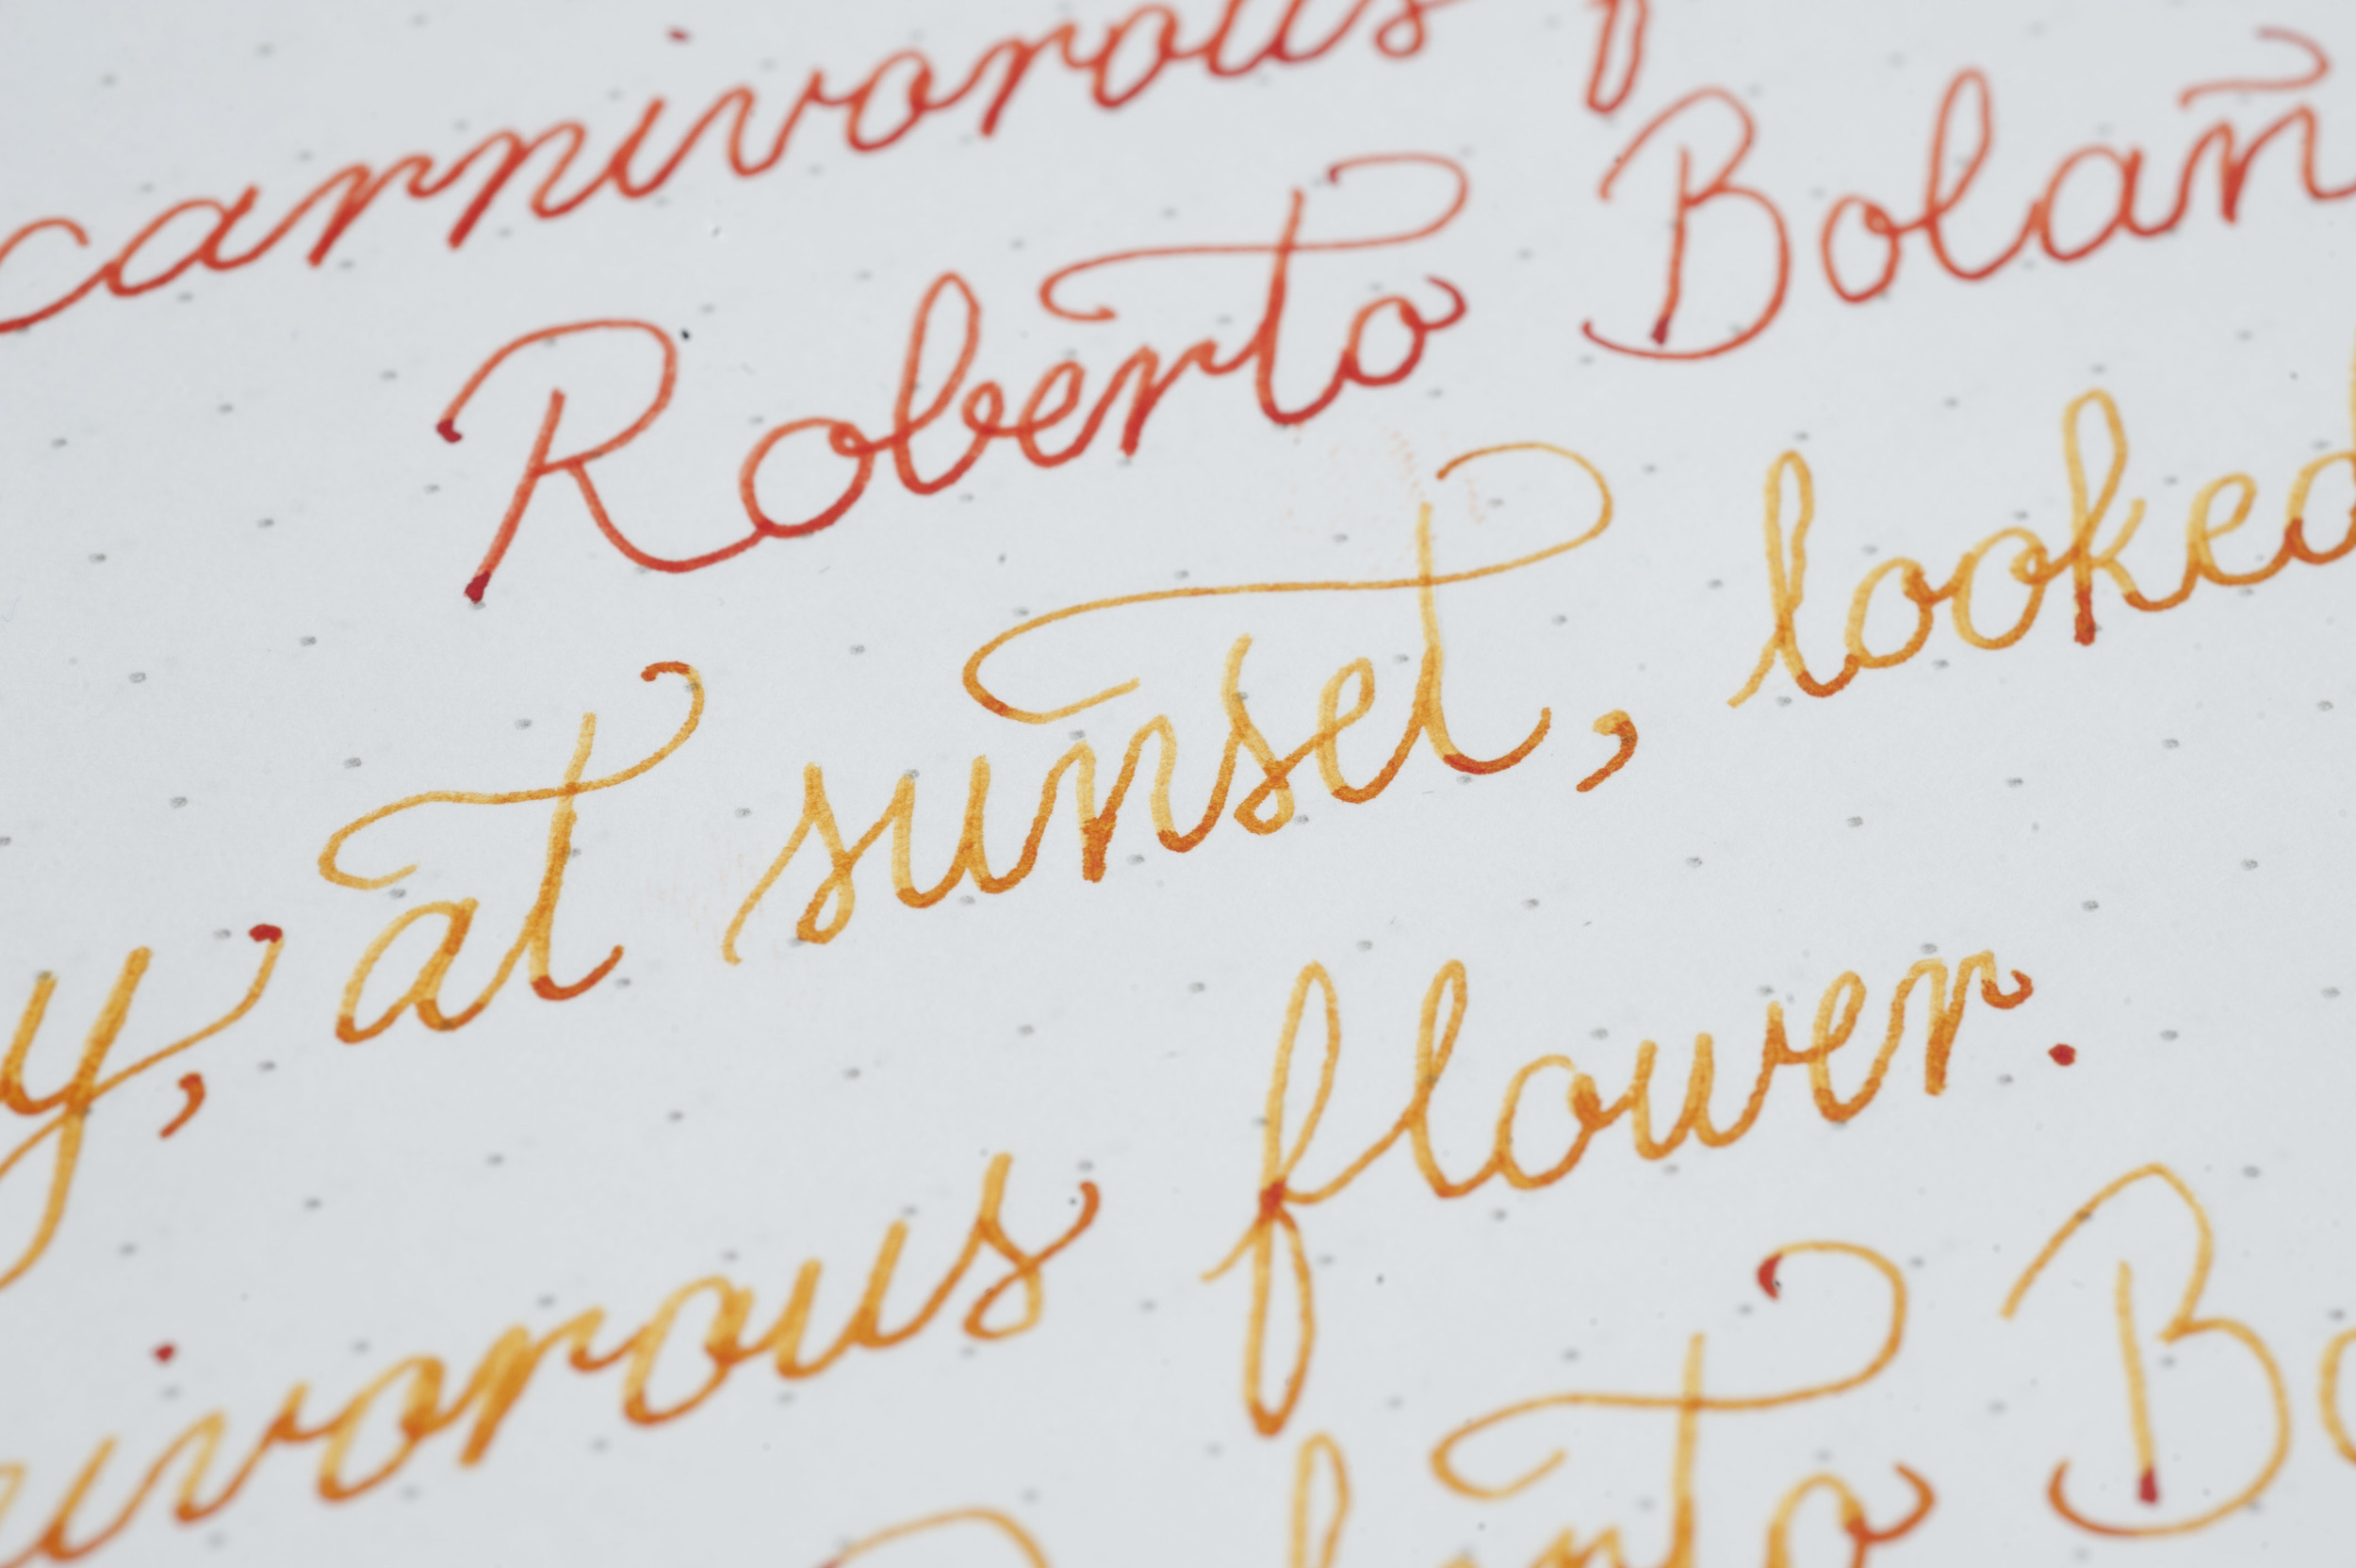 carnivorous f
Roberto Bolañ
y, at sunset, looked
ivorous flower.
berto Bo